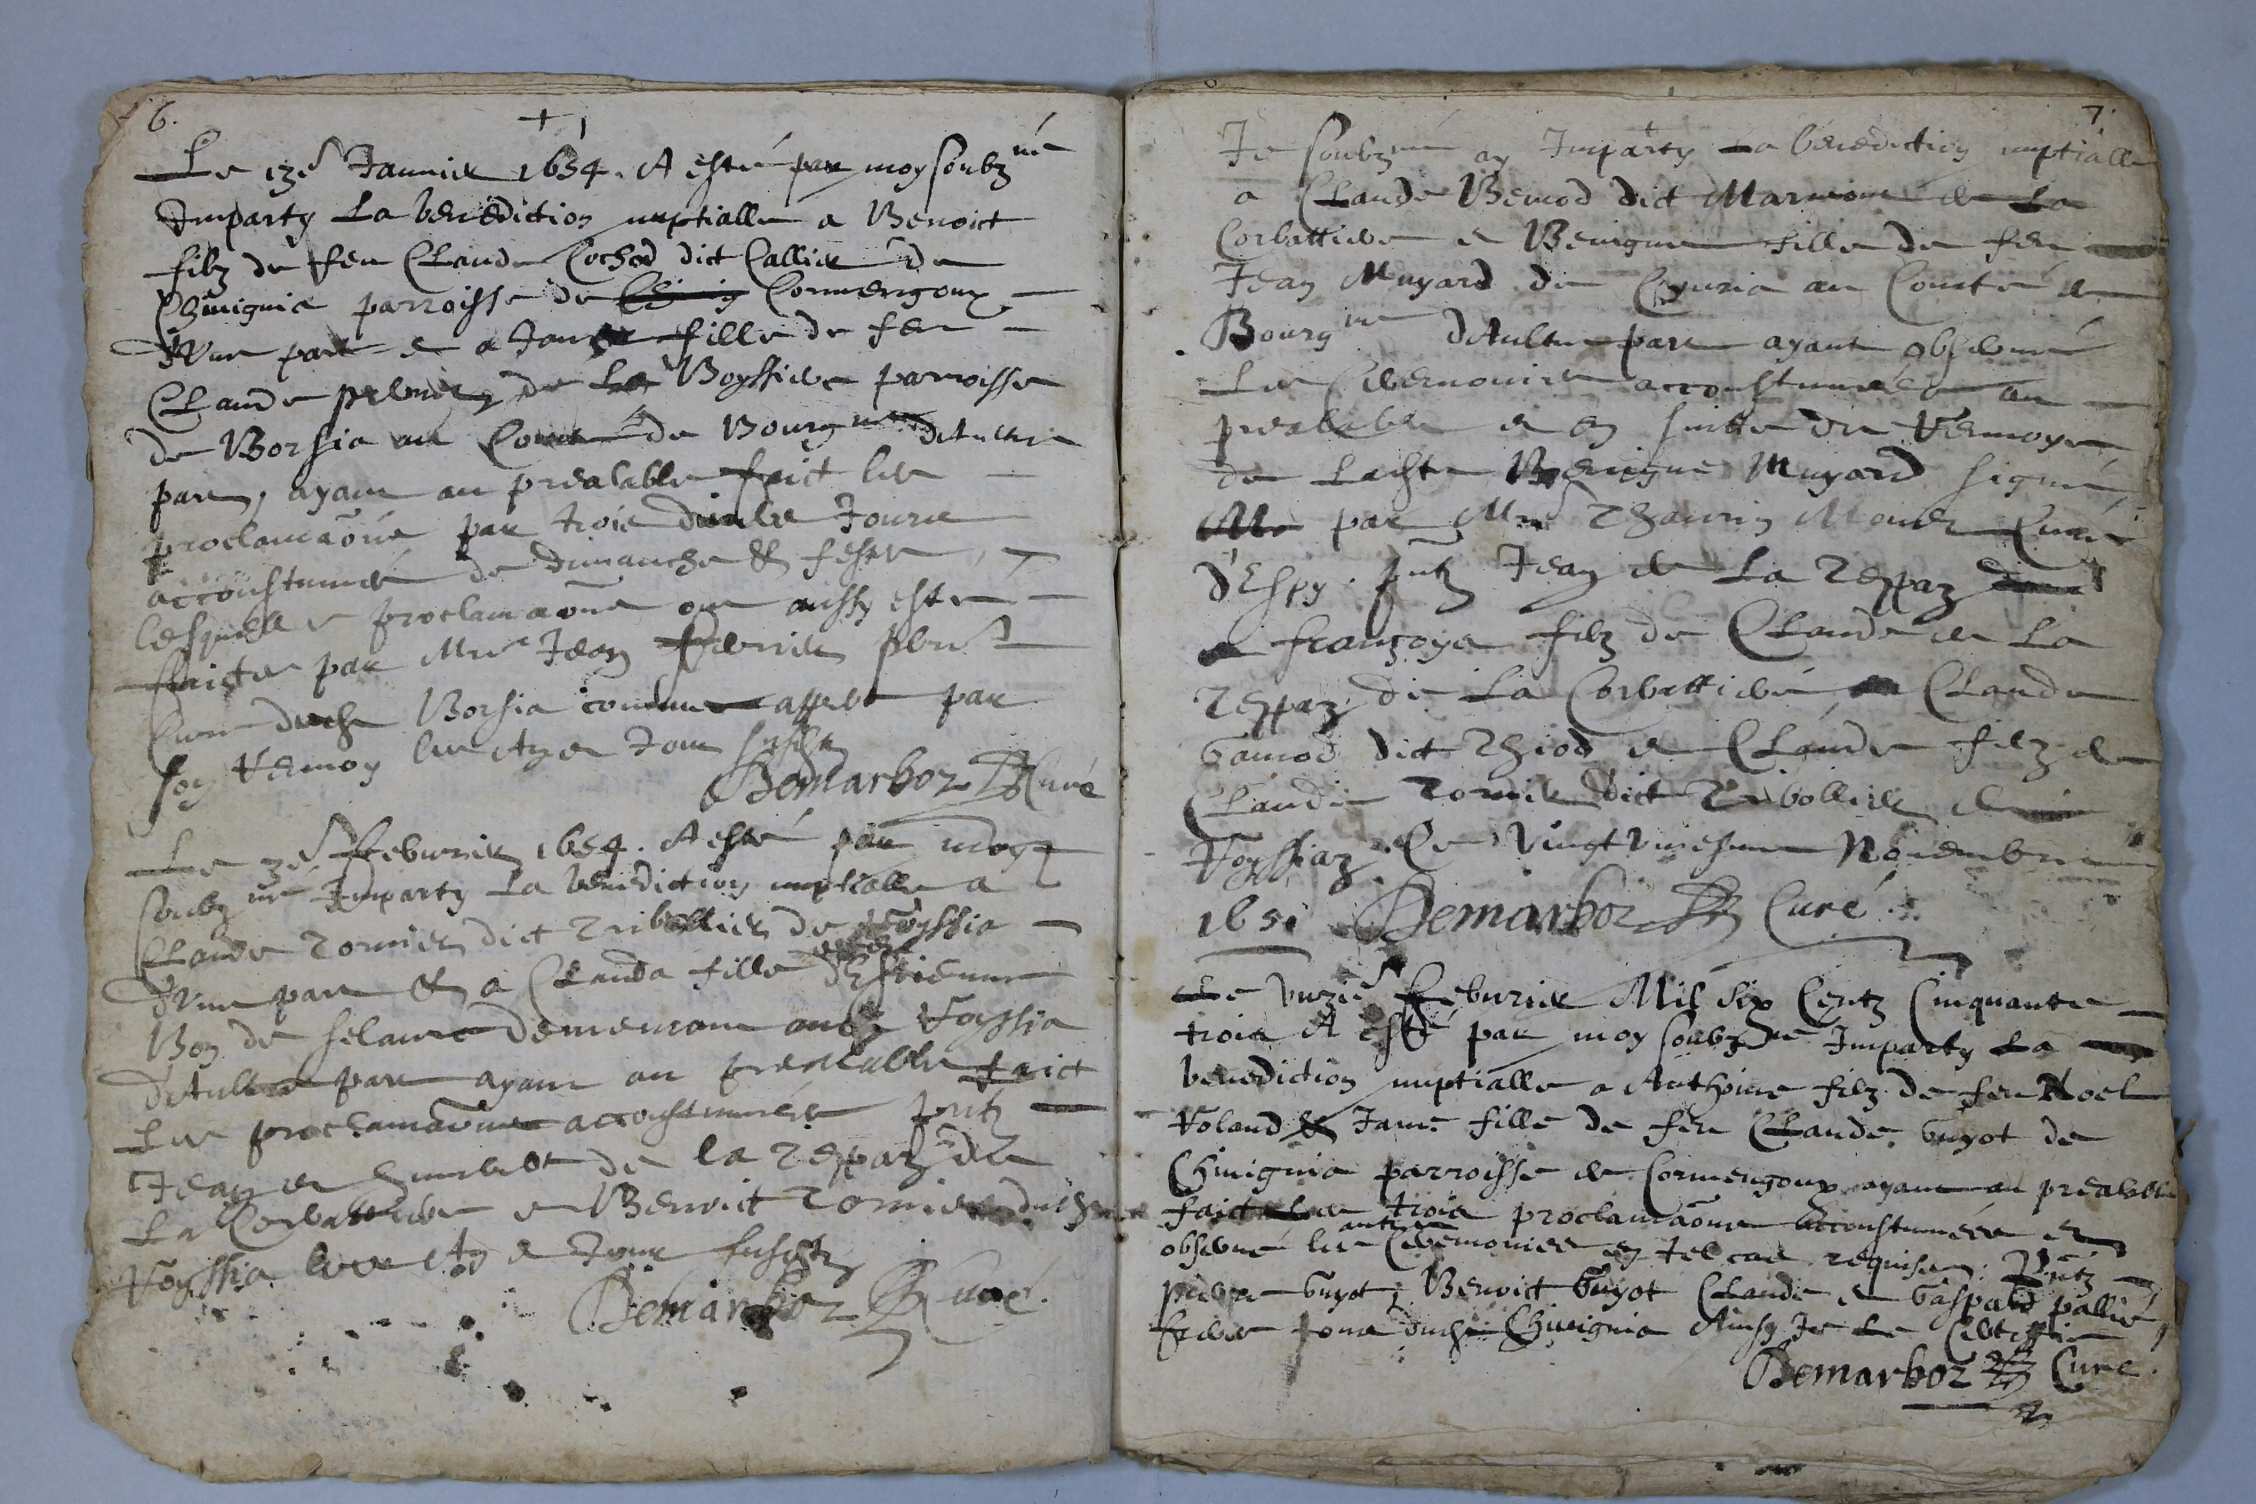 6.
Le 13e Januier 1654. A esté par moy soubzné
Imparty La benediction nuptialle a Benoict
filz de feu Claude Cochod dict Callier de
Chinignia parroisse de Cormengoux
d'Vne part e a Janne fille de feu
Claude de La Boyssiere parroisse
de Borsia au Conté de Bourgne d'Aultre
part, ayant au prealable faict les
proclamaõns par trois diuers Jours
accoustumés de dimanche & festes,
lesquelles proclamaõns ont aussy esté
faictes par Mre Jean pbre
Curé dudt Borsia comme appert par
son Renuoy les An e Jour susdt
Demarboz Curé
Le 3e Feburier 1654. A esté par moy
soubzné Imparty La benediction nuptialle a
Claude Tornier dict Tribollier de Voyssia
d'Vne part & a Clauda fille d'Estienne
Bon de demeurant audt Voyssia
d'Aultre part ayant au prealable faict
Les proclamaõns accoustumées pntz
Jean e Humbert de la Teppaz de
La Corbattiere e Benoict Tornier dudt
Voyssia les An e Jour susdtz
Demarboz Curé
7.
Je soubzné ay Imparty La benediction nuptialle
a Claude Bernod dict Marmont de La
Corbattiere e Benigne fille de feu
Jean Muyard de Cyuria au Conté de
Bourgne d'Aultre part ayant obserué
Les Ceremonies accoustumées au
prealable e en suitte du Renuoy
de Ladte Benigne Muyard signé
par Mre Thaurin Monet Curé
d'Espy. pntz Jean de La Teppaz
françoys filz de Claude de La
Teppaz de La Corbattiere, Claude
Gamod dict Thiod e Claude filz de
Claude Tornier dict Tribollier de
Voyssiaz. Ce Vingt Vniesme Nouembre
1651 Demarboz Curé
Le Vnzie Feburier Mil six Centz Cinquante
trois A esté par moy soubzné Imparty La
benediction nuptialle a Anthoine filz de feu Noel
Roland & Janne fille de feu Claude Guyot de
Chinignia parroisse de Cormengoux ayant au prealable
faict Les trois proclamaõns accoustumées e
obserué les autres Ceremonies en tel cas requises. Pntz
pierre Guyot, Benoict Guyot Claude e Gaspard pallier
freres tous dudt Chinignia Ainsy Je Le Certiffie
Demarboz Curé.